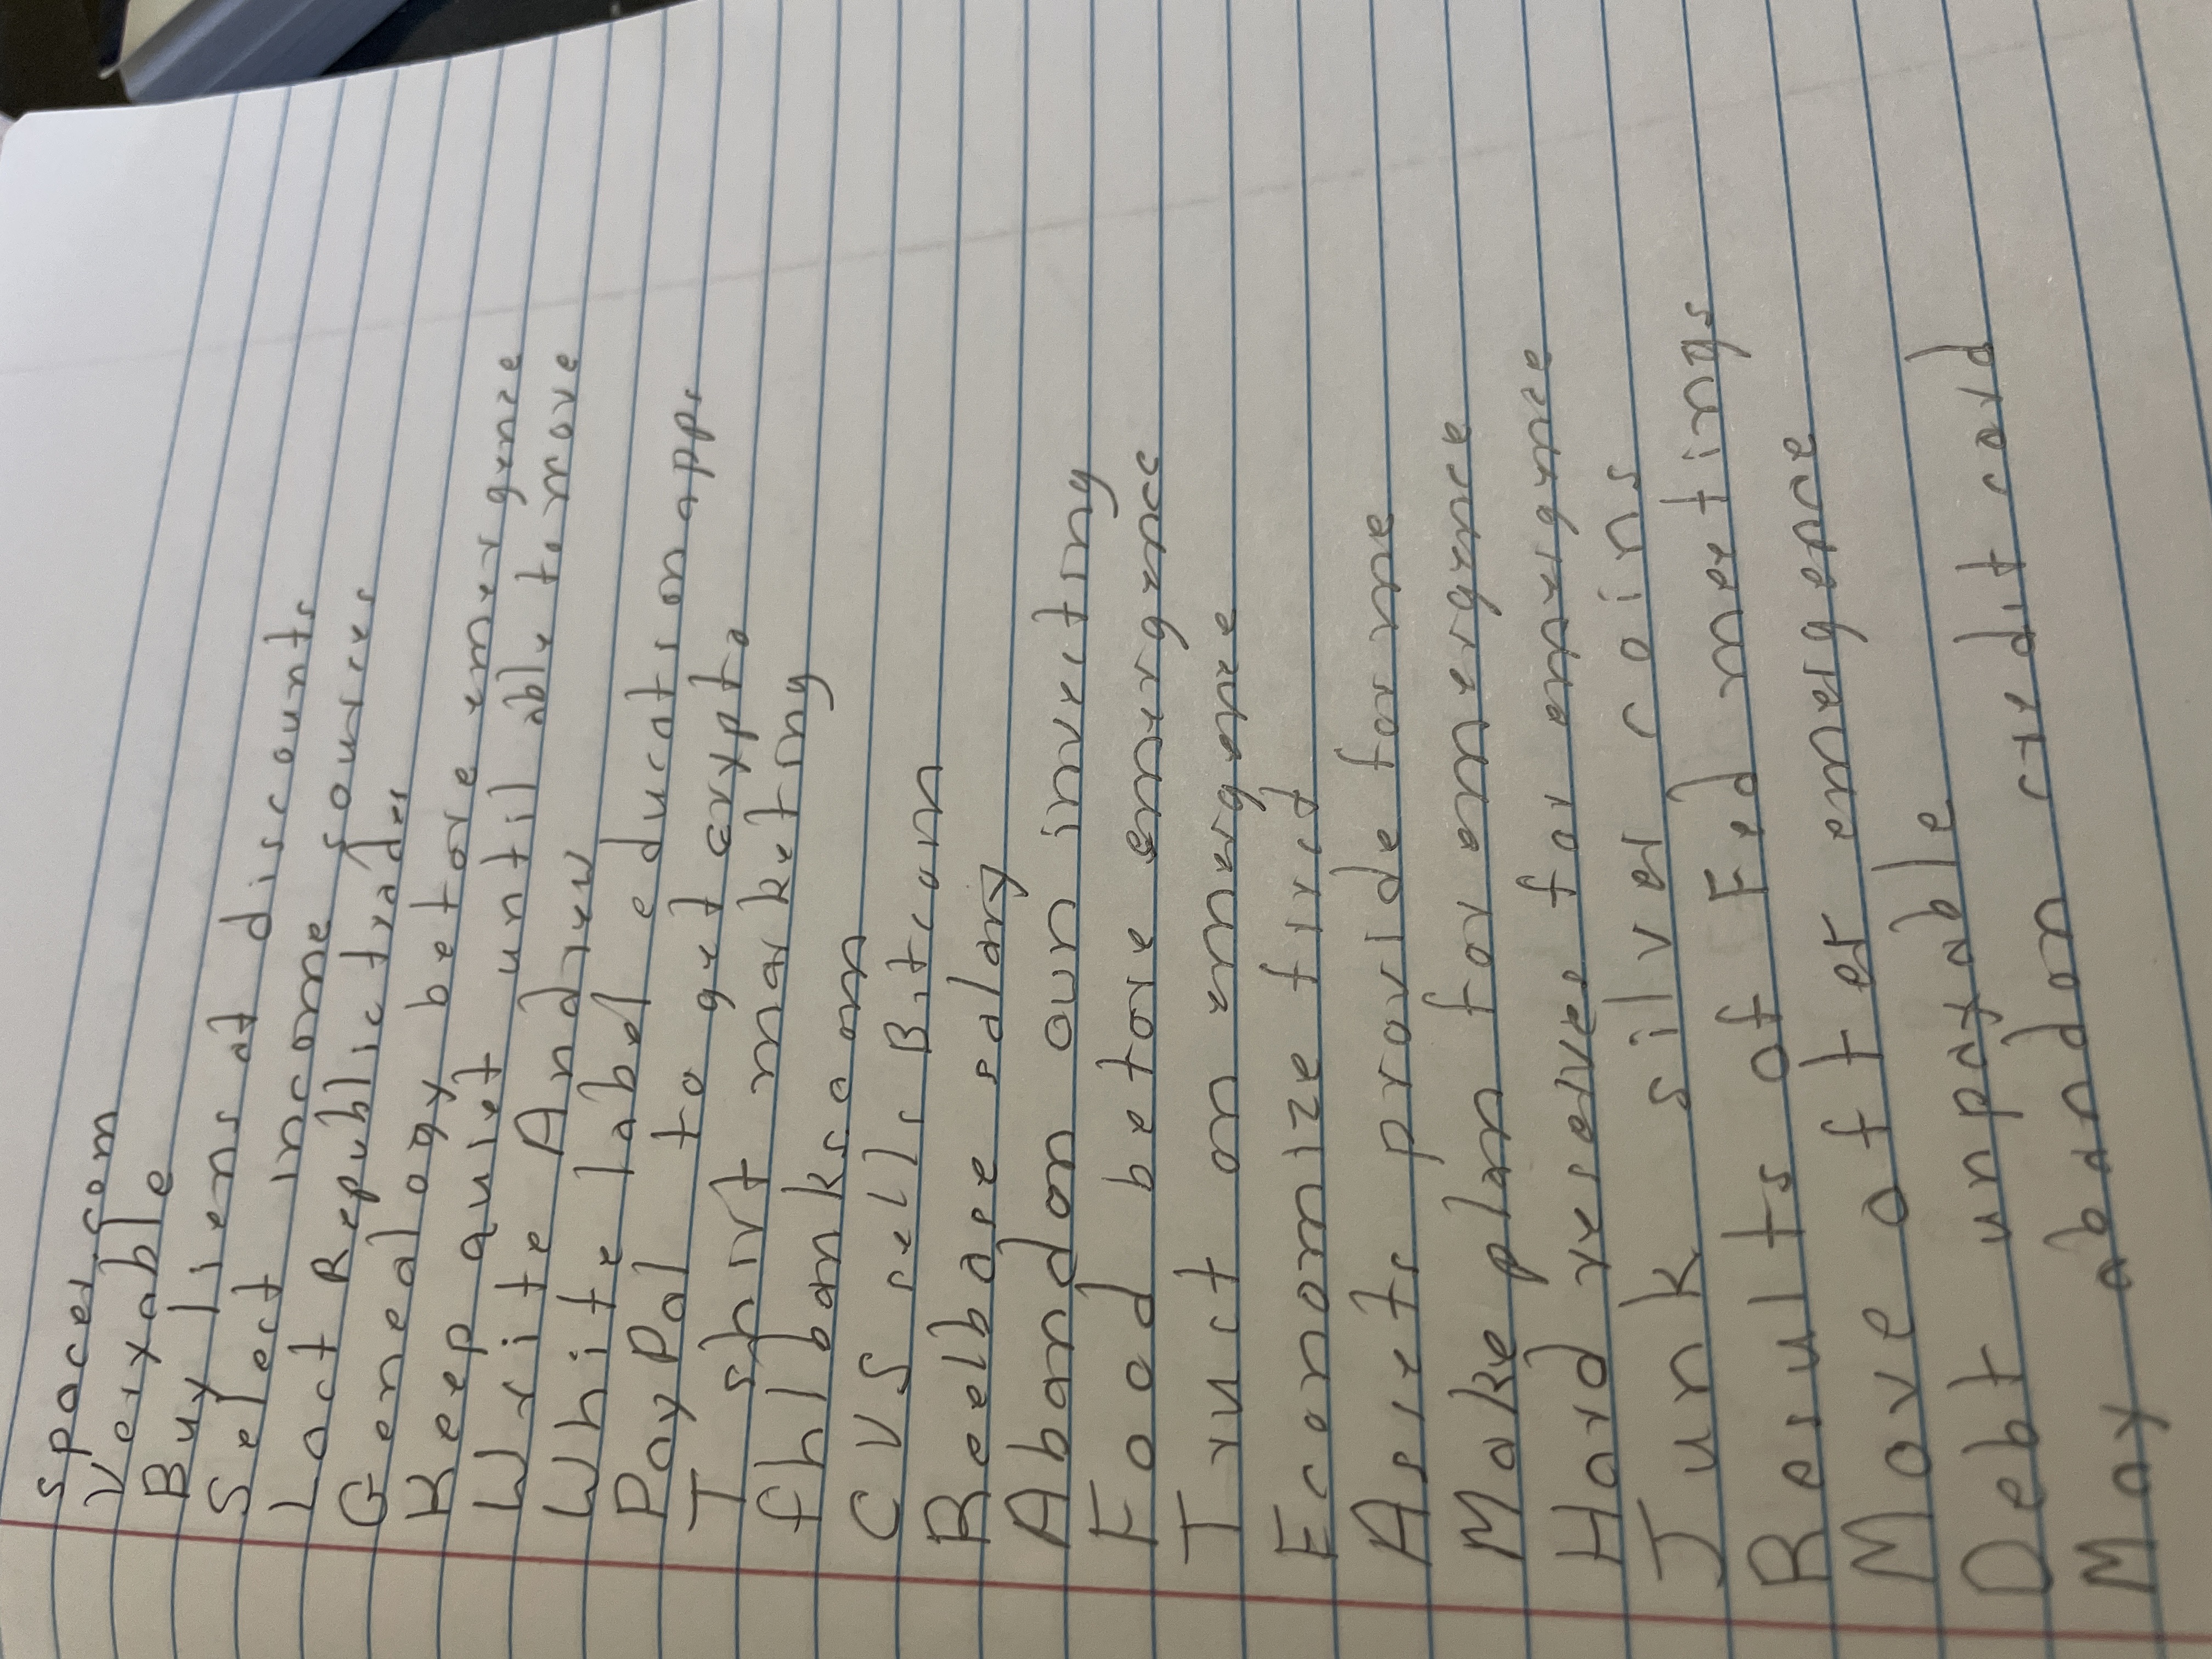 spacetg.om
Verxable
Buy liens at discount
Select income sources
Lact Republic trade
Genealogy before emergence
Keep quiet until able to move
Write Andrew
White label education apps
PayPal to get expdte
T shirt marketing
fhlbanks.om
CVS sells Bitcoin
Realbase salary
Abandon own investing
Food before emergence
Trust on emergence
Economize first
Assets provide for me
Make plan for emergence
Hard reserves for emergence
Junk silver coins
Results of Fed meetings
Move after emergence
Debt unpayable
May abandon credit card